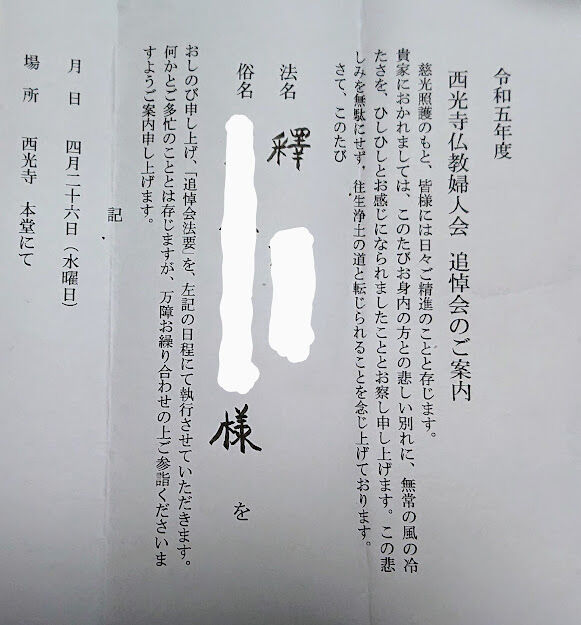 令和五年度
西光寺仏教婦人会 追悼会のご案内
慈光照護のもと、皆様には日々ご精進のことと存じます。
貴家におかれましては、このたびお身内の方との悲しい別れに、無常の風の冷
たさを、ひしひしとお感じになられましたこととお察し申し上げます。この悲
しみを無駄にせず、往生浄土の道と転じられることを念じ上げております。
さて、このたび
法名 釋
俗名 様 を
おしのび申し上げ、「追悼会法要」を、左記の日程にて執行させていただきます。
何かとご多忙のこととは存じますが、万障お繰り合わせの上ご参詣くださいま
すようご案内申し上げます。
記
月 日 四月二十六日（水曜日）
場 所 西光寺 本堂にて